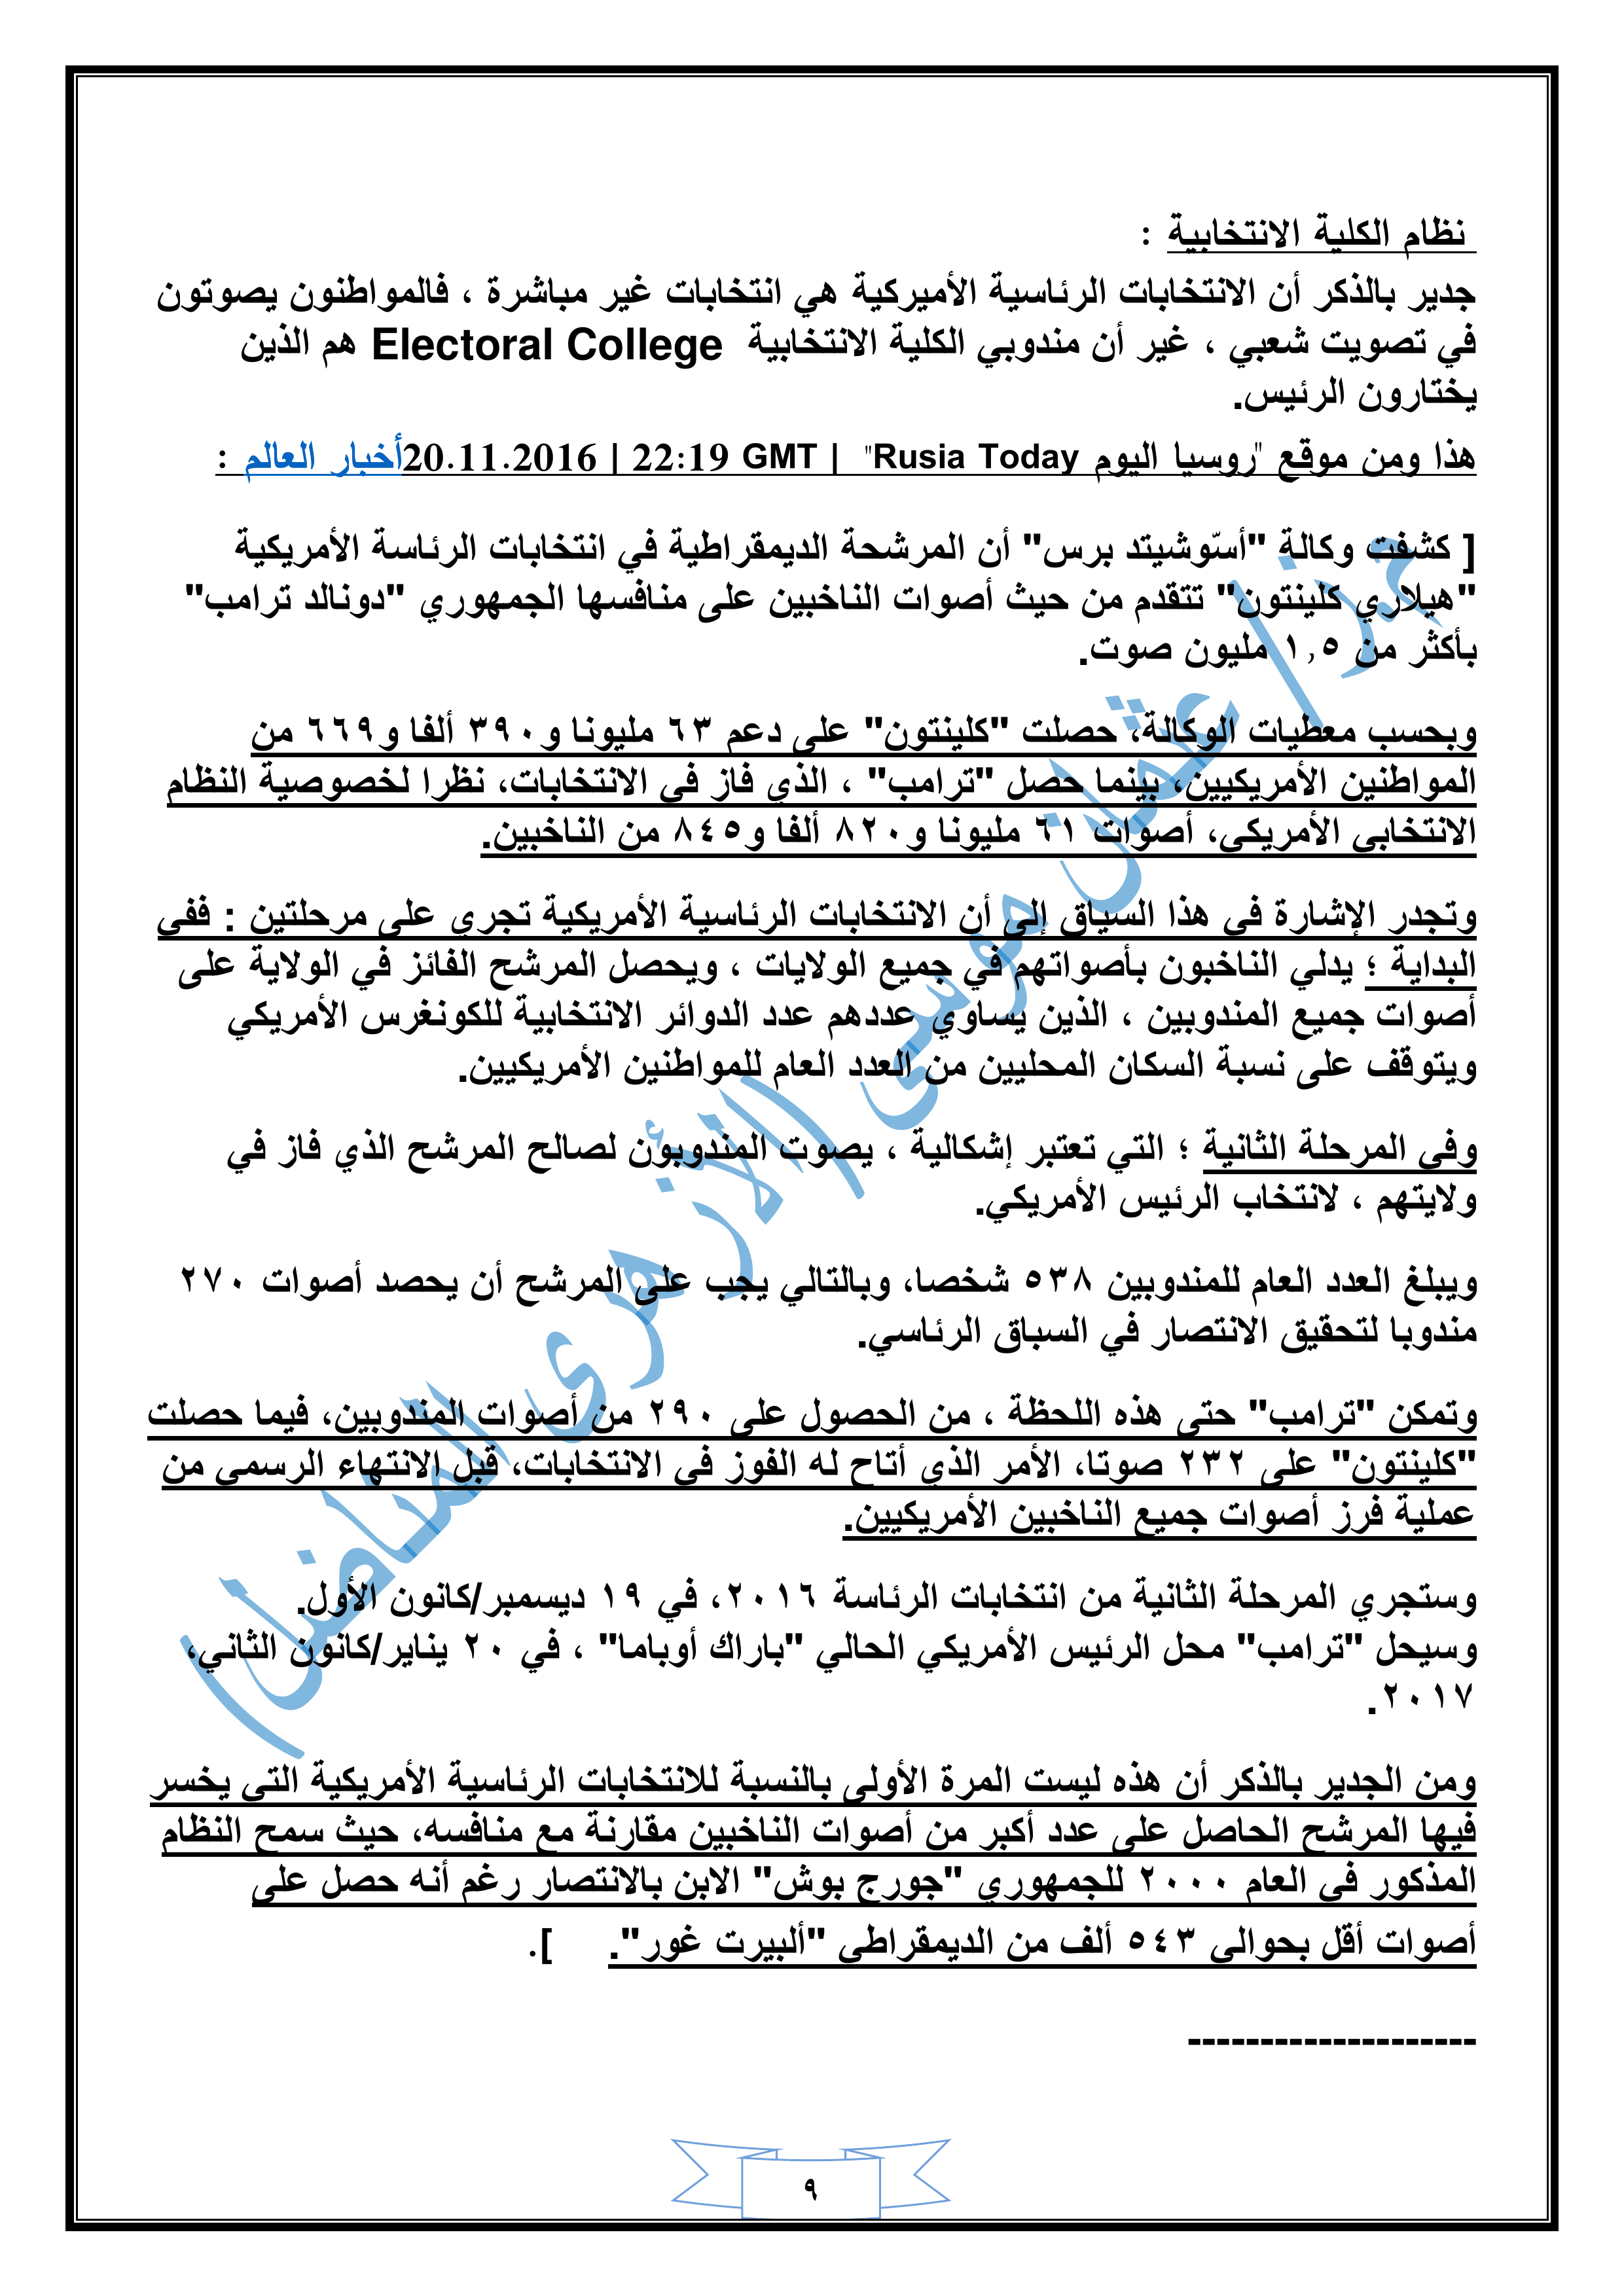 نظام الكلية الانتخابية :
جدير بالذكر أن الانتخابات الرئاسية الأميركية هي انتخابات غير مباشرة ، فالمواطنون يصوتون
في تصويت شعبي ، غير أن مندوبي الكلية الانتخابية Electoral College هم الذين
يختارون الرئيس.
هذا ومن موقع "روسيا اليوم Rusia Today" | 20.11.2016 | 22:19 GMT أخبار العالم :
[ كشفت وكالة "أسّوشيتد برس" أن المرشحة الديمقراطية في انتخابات الرئاسة الأمريكية
"هيلاري كلينتون" تتقدم من حيث أصوات الناخبين على منافسها الجمهوري "دونالد ترامب"
بأكثر من ١,٥ مليون صوت.
وبحسب معطيات الوكالة، حصلت "كلينتون" على دعم ٦٣ مليونا و٣٩٠ ألفا و٦٦٩ من
المواطنين الأمريكيين، بينما حصل "ترامب" ، الذي فاز في الانتخابات، نظرا لخصوصية النظام
الانتخابي الأمريكي، أصوات ٦١ مليونا و٨٢٠ ألفا و٨٤٥ من الناخبين.
وتجدر الإشارة في هذا السياق إلى أن الانتخابات الرئاسية الأمريكية تجري على مرحلتين : ففي
البداية ؛ يدلي الناخبون بأصواتهم في جميع الولايات ، ويحصل المرشح الفائز في الولاية على
أصوات جميع المندوبين ، الذين يساوي عددهم عدد الدوائر الانتخابية للكونغرس الأمريكي
ويتوقف على نسبة السكان المحليين من العدد العام للمواطنين الأمريكيين.
وفي المرحلة الثانية ؛ التي تعتبر إشكالية ، يصوت المندوبون لصالح المرشح الذي فاز في
ولايتهم ، لانتخاب الرئيس الأمريكي.
ويبلغ العدد العام للمندوبين ٥٣٨ شخصا، وبالتالي يجب على المرشح أن يحصد أصوات ٢٧٠
مندوبا لتحقيق الانتصار في السباق الرئاسي.
وتمكن "ترامب" حتى هذه اللحظة ، من الحصول على ٢٩٠ من أصوات المندوبين، فيما حصلت
"كلينتون" على ٢٣٢ صوتا، الأمر الذي أتاح له الفوز في الانتخابات، قبل الانتهاء الرسمي من
عملية فرز أصوات جميع الناخبين الأمريكيين.
وستجري المرحلة الثانية من انتخابات الرئاسة ٢٠١٦، في ١٩ ديسمبر/كانون الأول.
وسيحل "ترامب" محل الرئيس الأمريكي الحالي "باراك أوباما" ، في ٢٠ يناير/كانون الثاني،
٢٠١٧.
ومن الجدير بالذكر أن هذه ليست المرة الأولى بالنسبة للانتخابات الرئاسية الأمريكية التي يخسر
فيها المرشح الحاصل على عدد أكبر من أصوات الناخبين مقارنة مع منافسه، حيث سمح النظام
المذكور في العام ٢٠٠٠ للجمهوري "جورج بوش" الابن بالانتصار رغم أنه حصل على
أصوات أقل بحوالي ٥٤٣ ألف من الديمقراطي "ألبيرت غور". ].
--------------------
٩
عثمان موسى (الأزهرى المناضل)